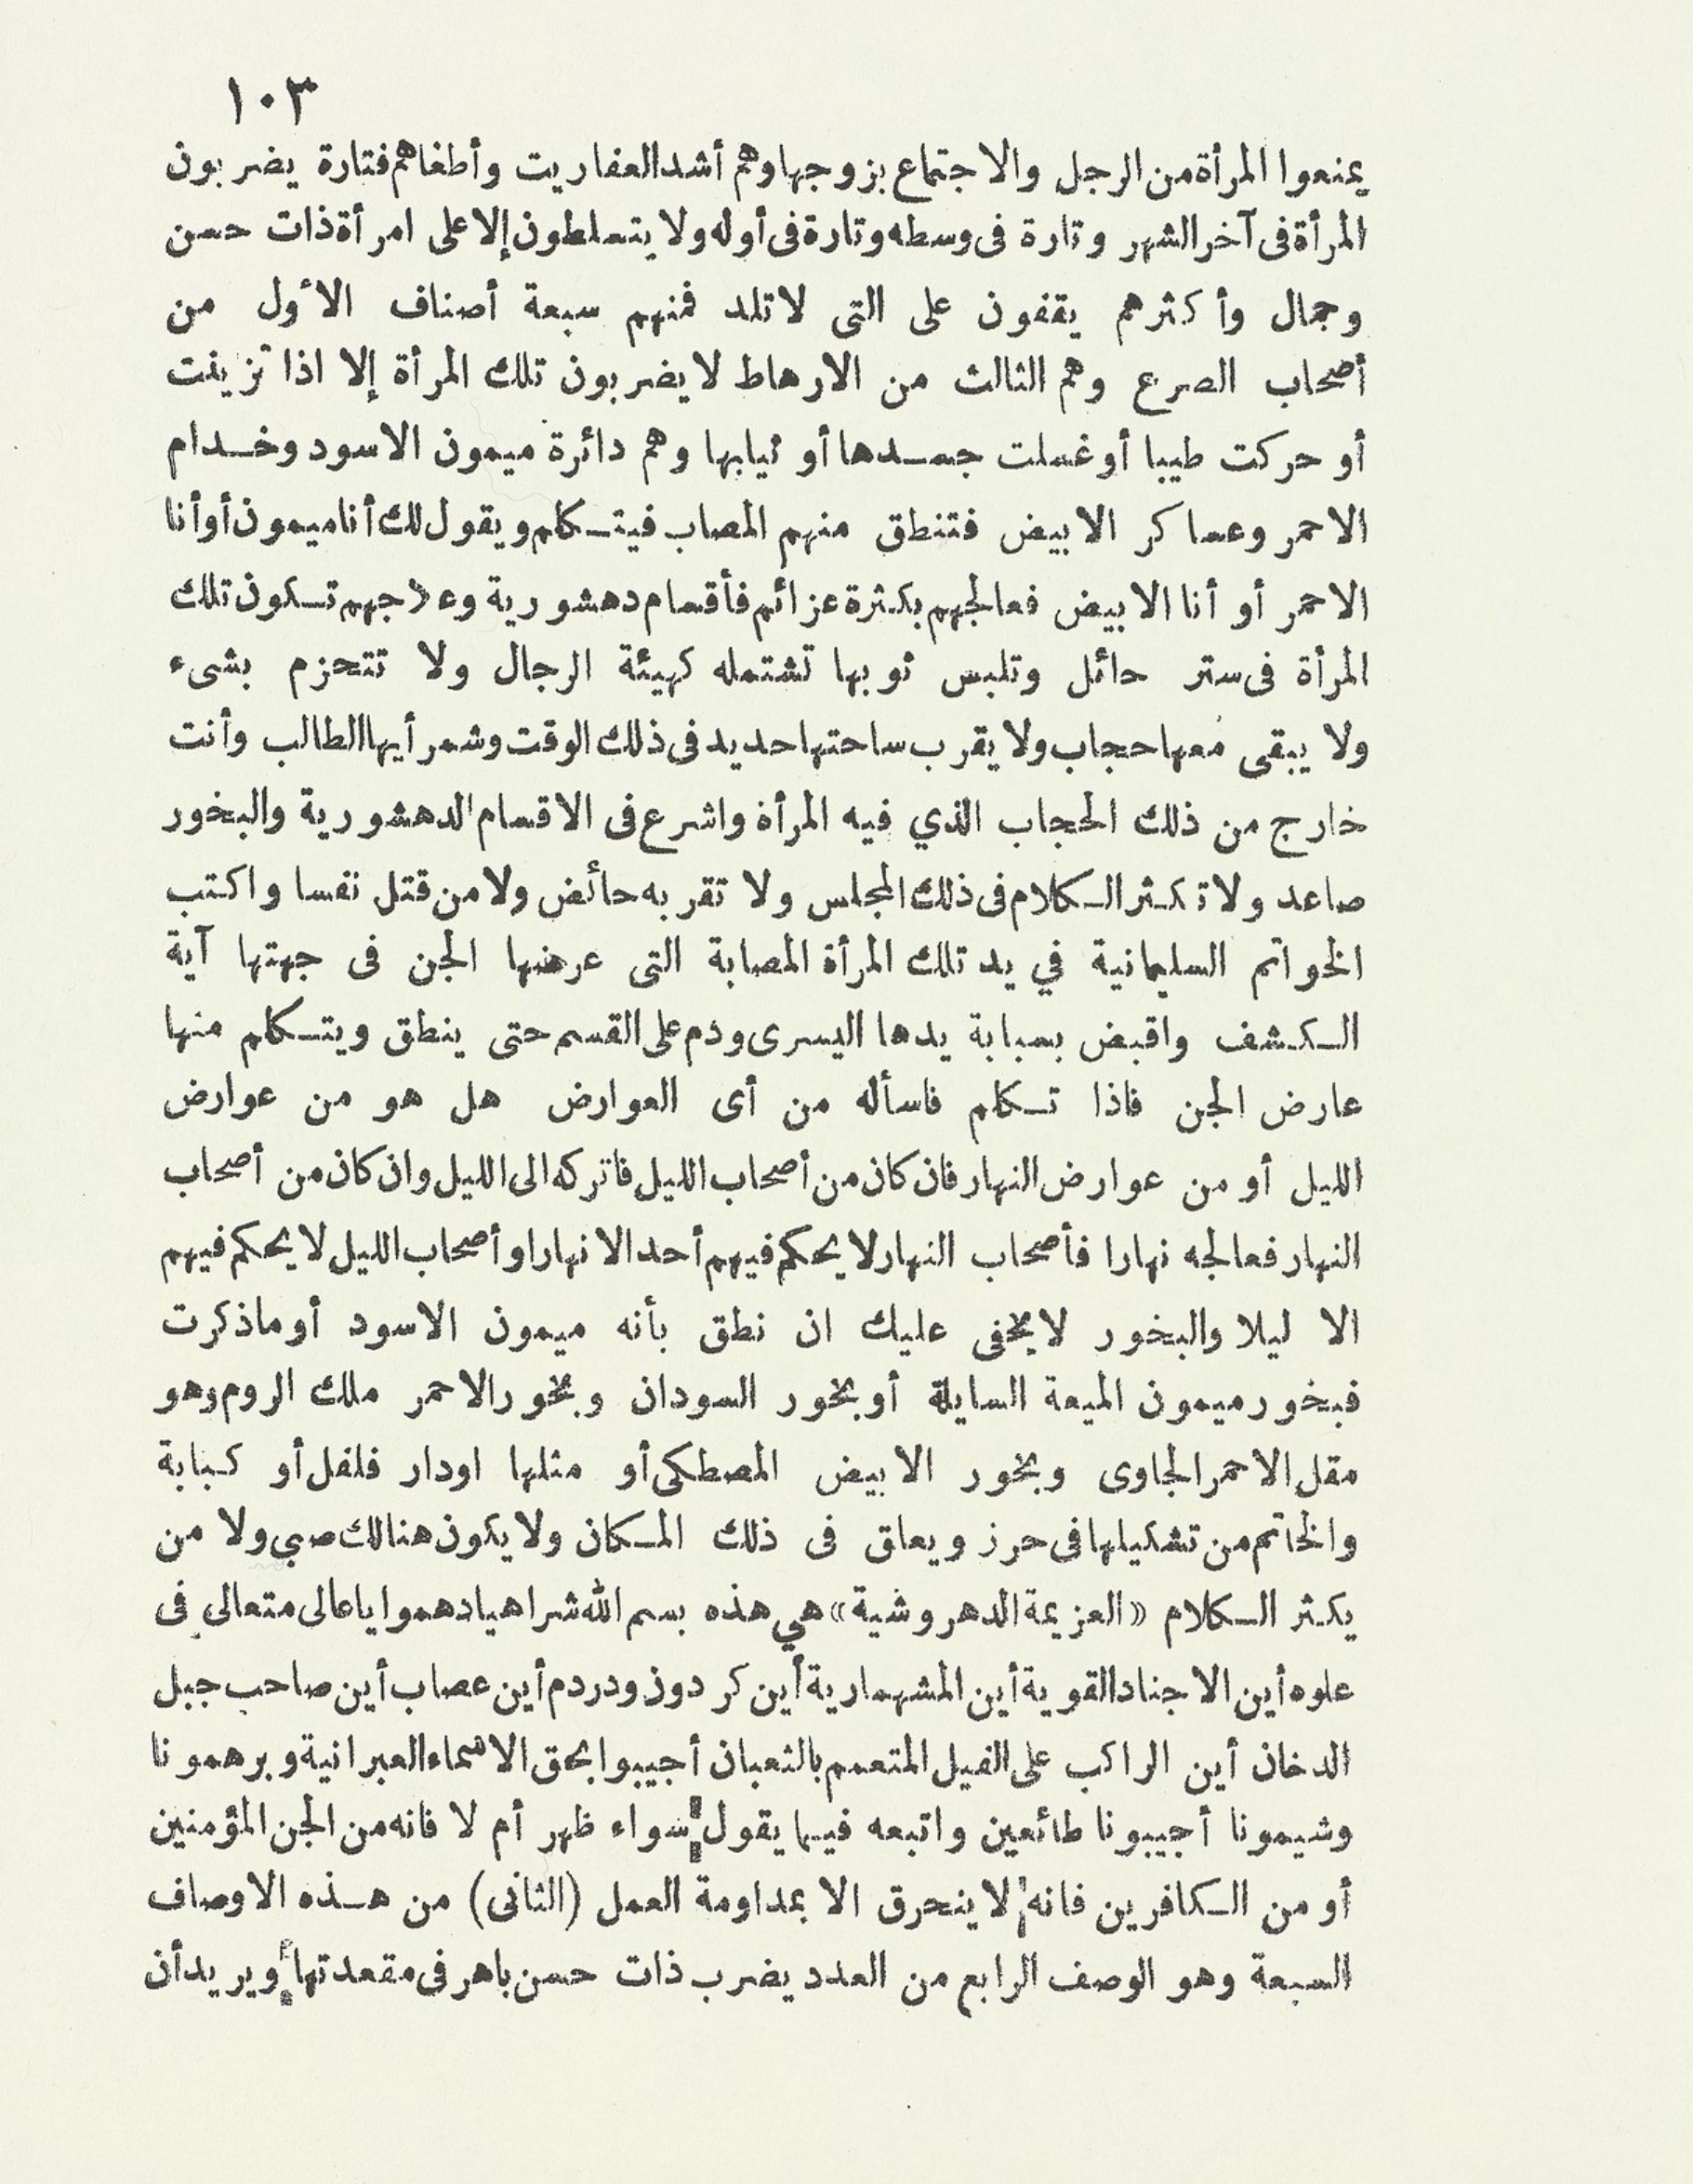 ١٠٣
يمنعوا المرأة من الرجل والاجتماع بزوجها وهم أشد العفاريت وأطغاهم فتارة يضربون
المرأة فى آخر الشهر وتارة فى وسطه وتارة فى أوله ولا يتسلطون إلا على امرأة ذات حسن
وجمال وأكثرهم يقفون على التى لا تلد فمنهم سبعة أصناف الأول من
أصحاب الصرع وهم الثالث من الارهاط لا يضربون تلك المرأة إلا اذا تزينت
أو حركت طيبا أو غسلت جسدها أو ثيابها وهم دائرة ميمون الاسود وخدام
الاحمر وعساكر الابيض فتنطق منهم المصاب فيتكلم ويقول لك أنا ميمون أو أنا
الاحمر أو أنا الابيض فعالجهم بكثرة عزائم فأقسام دهشورية وعلاجهم تكون تلك
المرأة فى ستر حائل وتلبس ثوبها تشتمله كهيئة الرجال ولا تتحزم بشىء
ولا يبقى معها حجاب ولا يقرب ساحتها حديد فى ذلك الوقت وشمر أيها الطالب وأنت
خارج من ذلك الحجاب الذي فيه المرأة واشرع فى الاقسام الدهشورية والبخور
صاعد ولا تكثر الكلام فى ذلك المجلس ولا تقربه حائض ولا من قتل نفسا واكتب
الخواتم السليمانية في يد تلك المرأة المصابة التى عرضها الجن فى جهتها آية
الكشف واقبض بسبابة يدها اليسرى ودم على القسم حتى ينطق ويتكلم منها
عارض الجن فاذا تكلم فاسأله من أى العوارض هل هو من عوارض
الليل أو من عوارض النهار فان كان من أصحاب الليل فاتركه الى الليل وان كان من أصحاب
النهار فعالجه نهارا فأصحاب النهار لا يحكم فيهم أحد الا نهارا وأصحاب الليل لا يحكم فيهم
الا ليلا والبخور لا يخفى عليك ان نطق بأنه ميمون الاسود أو ما ذكرت
فبخور ميمون الميعة السايلة أو بخور السودان وبخور الاحمر ملك الروم وهو
مقل الاحمر الجاوى وبخور الابيض المصطكى أو مثلها اودار فلفل أو كبابة
والخاتم من تشكيلها فى حرز ويعلق فى ذلك المكان ولا يكون هنالك صبي ولا من
يكثر الكلام «العزيمة الدهروشية» هي هذه بسم الله شراهيا دهموا يا عالى متعالي فى
علوه أين الاجناد القوية أين المشهمارية أين كردون ودردم أين عصاب أين صاحب جبل
الدخان أين الراكب على الفيل المتعمم بالثعبان أجيبوا بحق الاسماء العبرانية وبرهمونا
وشيمونا أجيبونا طائعين واتبعه فيما يقول سواء ظهر أم لا فانه من الجن المؤمنين
أو من الكافرين فانه لا ينحرق الا بمداومة العمل (الثانى) من هذه الاوصاف
السبعة وهو الوصف الرابع من العدد يضرب ذات حسن باهر فى مقعدتها ويريد أن